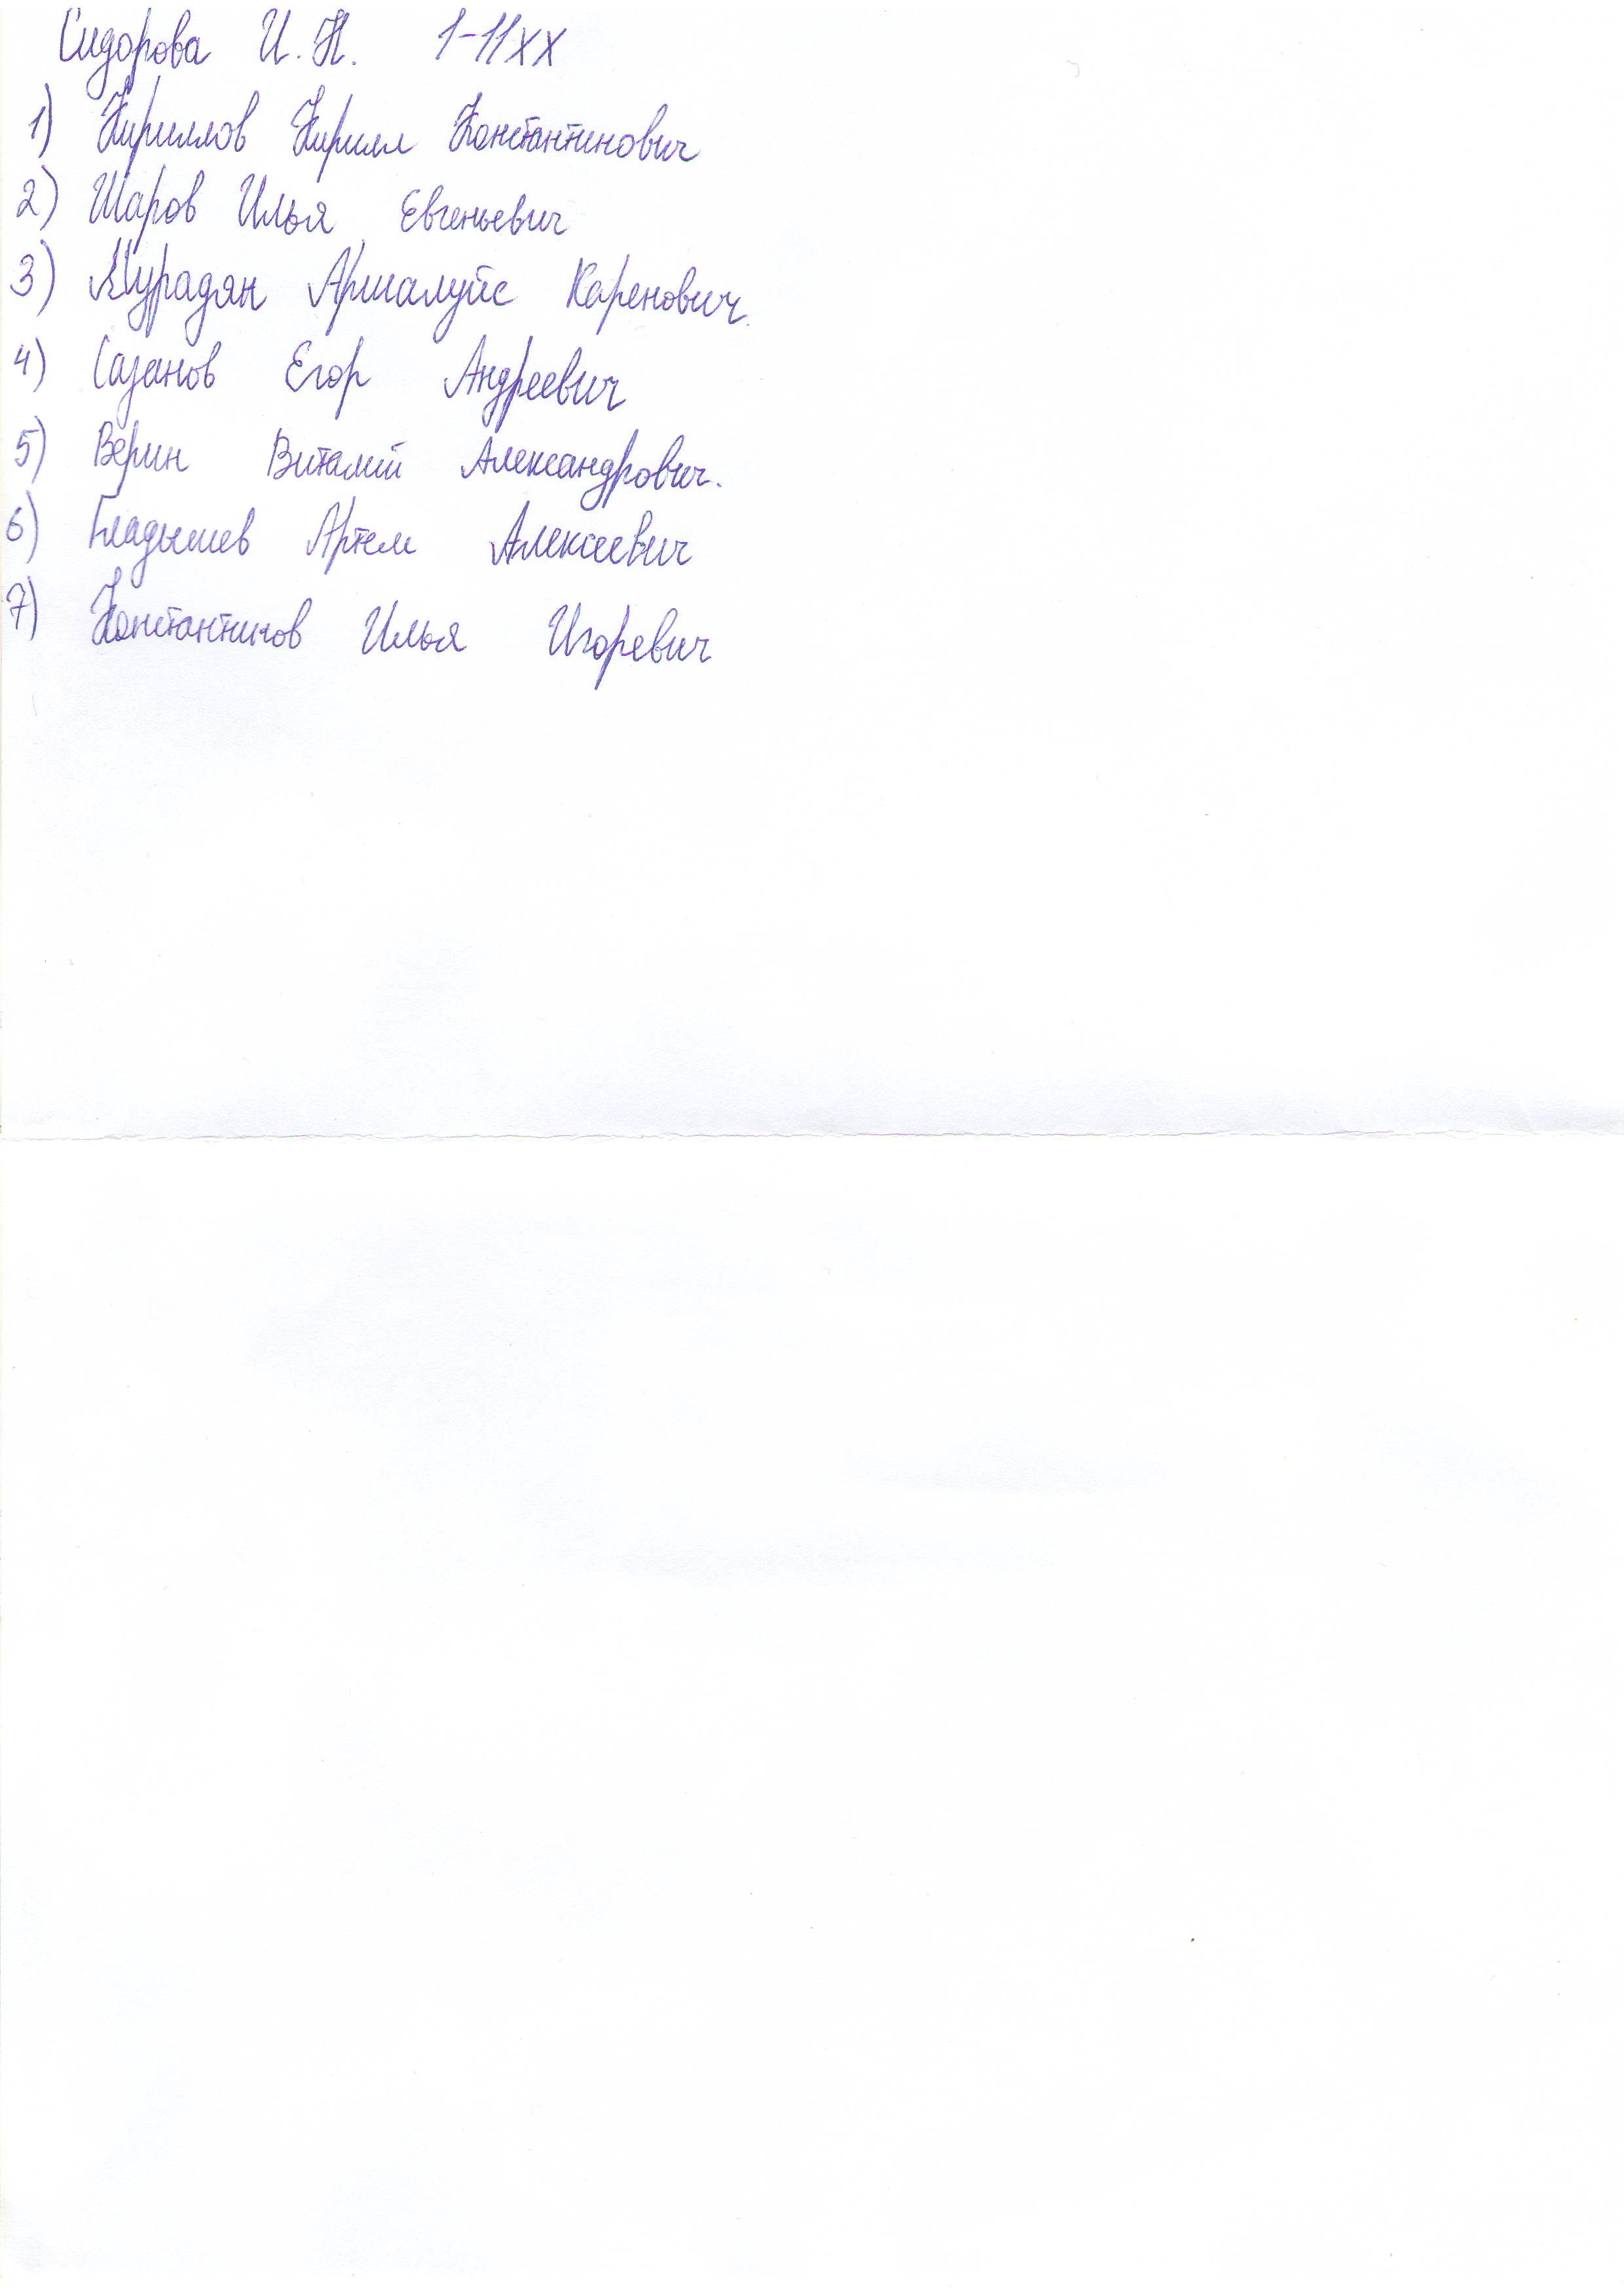 Сидорова И. Н. 1-11XX
1) Кириллов Кирилл Константинович
2) Шаров Илья Евгеньевич
3) Мурадян Аршалуйс Каренович.
4) Сазанов Егор Андреевич
5) Верин Виталий Александрович.
6) Гладышев Артем Алексеевич
7) Константинов Илья Игоревич